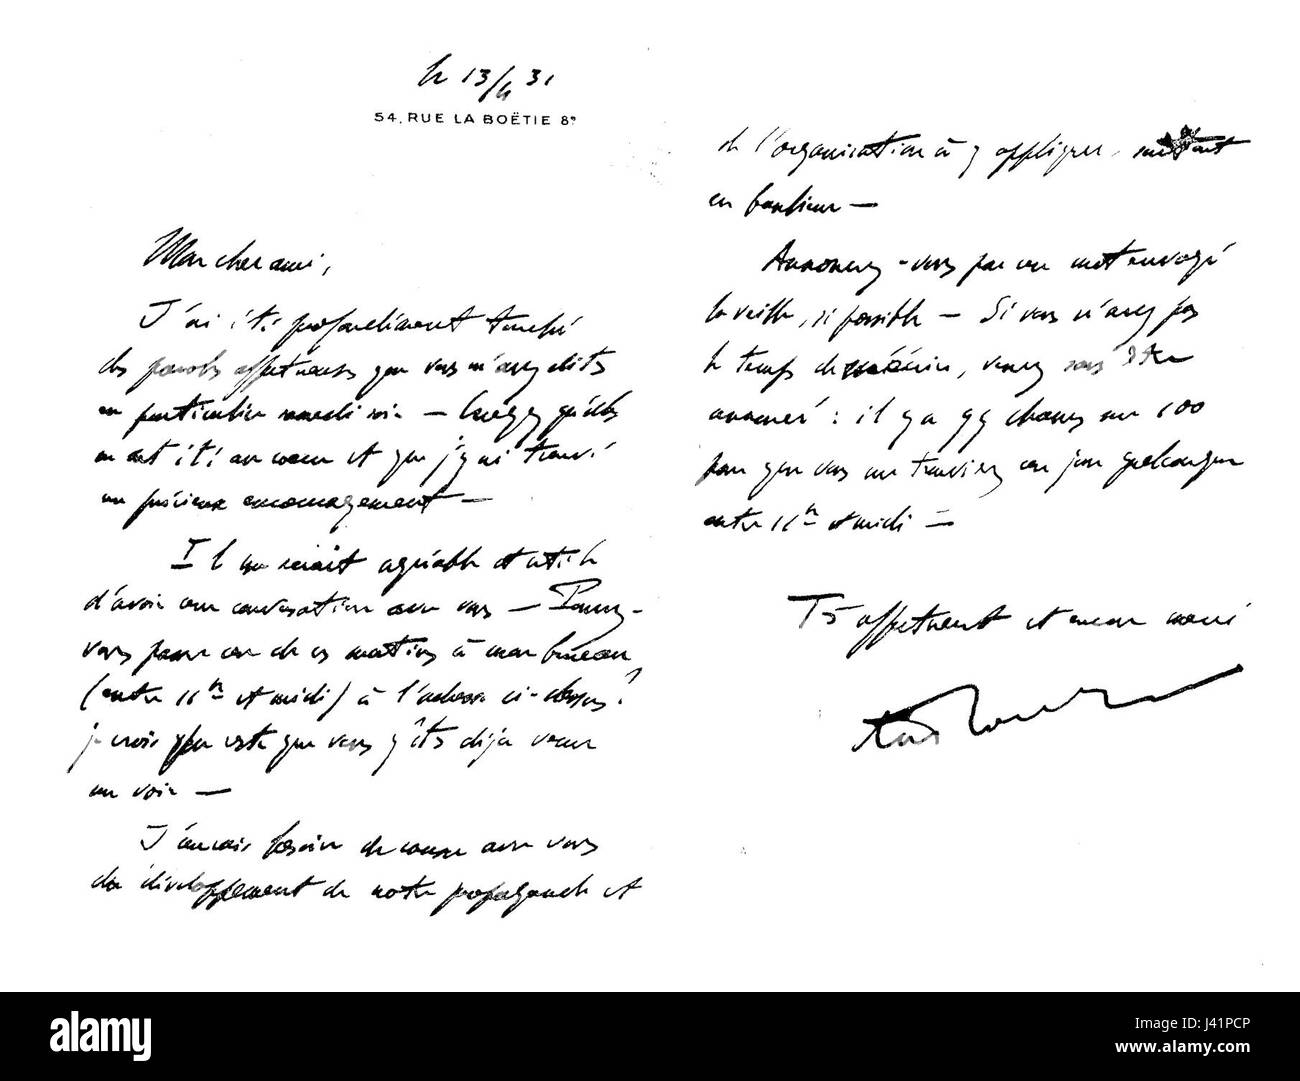 le 13/4 31
54, RUE LA BOËTIE 8e
Mon cher ami,
J'ai été profondément touché
des paroles affectueuses que vous m'avez dites
en particulier samedi soir — Croyez qu'elles
m'ont été au cœur et que j'y ai trouvé
un précieux encouragement —
Il me serait agréable et utile
d'avoir une conversation avec vous — Pouvez-
vous passer un de ces matins à mon bureau
(entre 11h et midi) à l'adresse ci-dessus?
je crois que vous y êtes déjà venu
me voir —
J'aurais besoin de causer avec vous
du développement de notre propagande et
de l'organisation à y appliquer, surtout
en banlieue —
Annoncez-vous par un mot envoyé
la veille, si possible — Si vous n'avez pas
le temps de m'écrire, venez sans être
annoncé : il y a 99 chances sur 100
pour que vous me trouviez un jour quelconque
entre 11h et midi —
Ts affectueusement et encore merci
alamy
Image ID: J41PCP
www.alamy.com